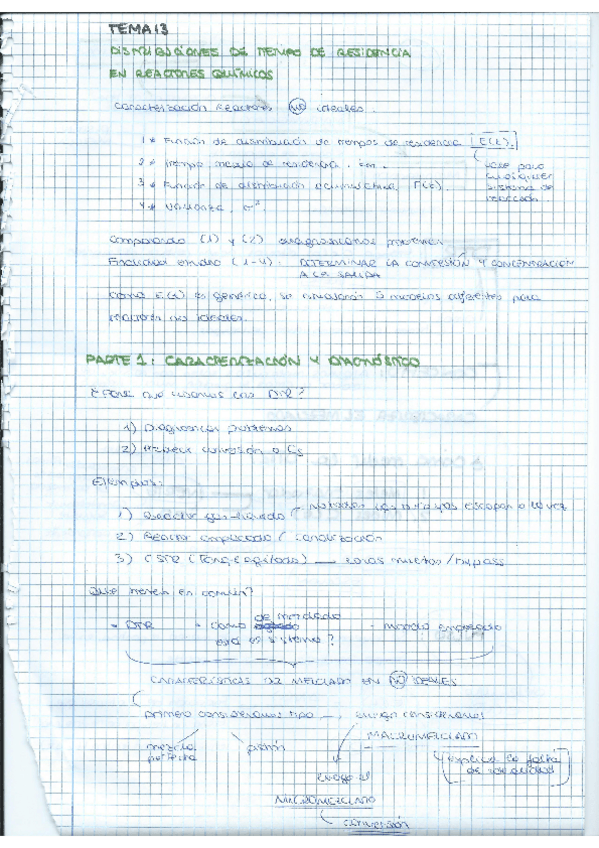 TEMA 13
DISTRIBUCIONES DE TIEMPO DE RESIDENCIA
EN REACTORES QUÍMICOS
Caracterización Reactores NO ideales.
1 * Función de distribución de tiempos de residencia [E(t).]
2 * tiempo medio de residencia, tm.
3 * Función de distribución acumulativa, F(t).
4 * varianza, σ²
vale para
cualquier
sistema de
reacción.
Comparando (1) y (2) diagnosticamos problemas
Finalidad (1-4): DETERMINAR LA CONVERSIÓN Y CONCENTRACIÓN
A LA SALIDA
Como E(t) es genérica, se 5 modelos diferentes para
reactores no ideales.
PARTE 1: CARACTERIZACIÓN Y DIAGNÓSTICO
¿Para que usamos una DTR?
1) Diagnosticar problemas
2) conversión o Cs
Ejemplos:
1) Reactor gas-líquido / escapan a la vez
2) Reactor empacado / canalización
3) CSTR (Tanque agitado) — zonas muertas / bypass
¿Qué tienen en común?
- DTR - como de mezclado - modelo empleado
está el sistema?
CARACTERÍSTICAS DE MEZCLADO EN NO IDEALES
primero consideramos tipo → consideramos
MACROMEZCLADO
mezcla
perfecta
pistón
luego el
explica la forma
de
MICROMEZCLADO
CONVERSIÓN